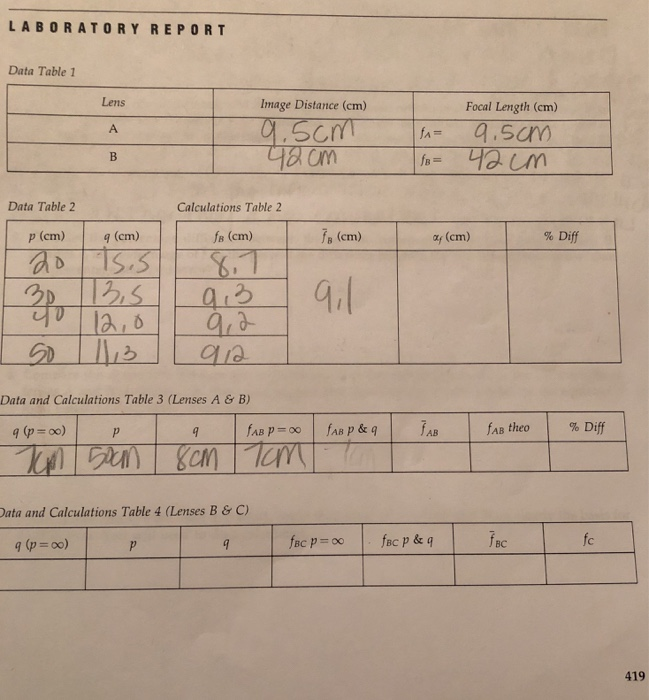 LABORATORY REPORT
Data Table 1
Lens Image Distance (cm) Focal Length (cm)
A 9.5cm fA = 9.5cm
B 42cm fB = 42cm
Data Table 2 Calculations Table 2
p (cm) q (cm) fB (cm) f̄B (cm) αf (cm) % Diff
20 15.5 8.7
30 13.5 9.3 9.1
40 12.0 9.2
50 11.3 9.2
Data and Calculations Table 3 (Lenses A & B)
q (p = ∞) p q fAB p = ∞ fAB p & q f̄AB fAB theo % Diff
7cm 50cm 8cm 7cm
Data and Calculations Table 4 (Lenses B & C)
q (p = ∞) p q fBC p = ∞ fBC p & q f̄BC fC
419